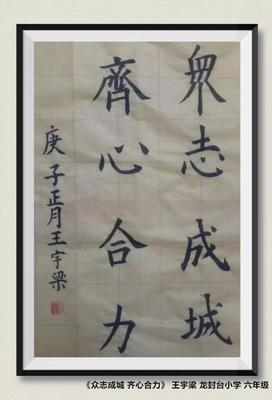 眾志成城
齊心合力
庚子正月王宇梁
《众志成城 齐心合力》 王宇梁 龙封台小学 六年级